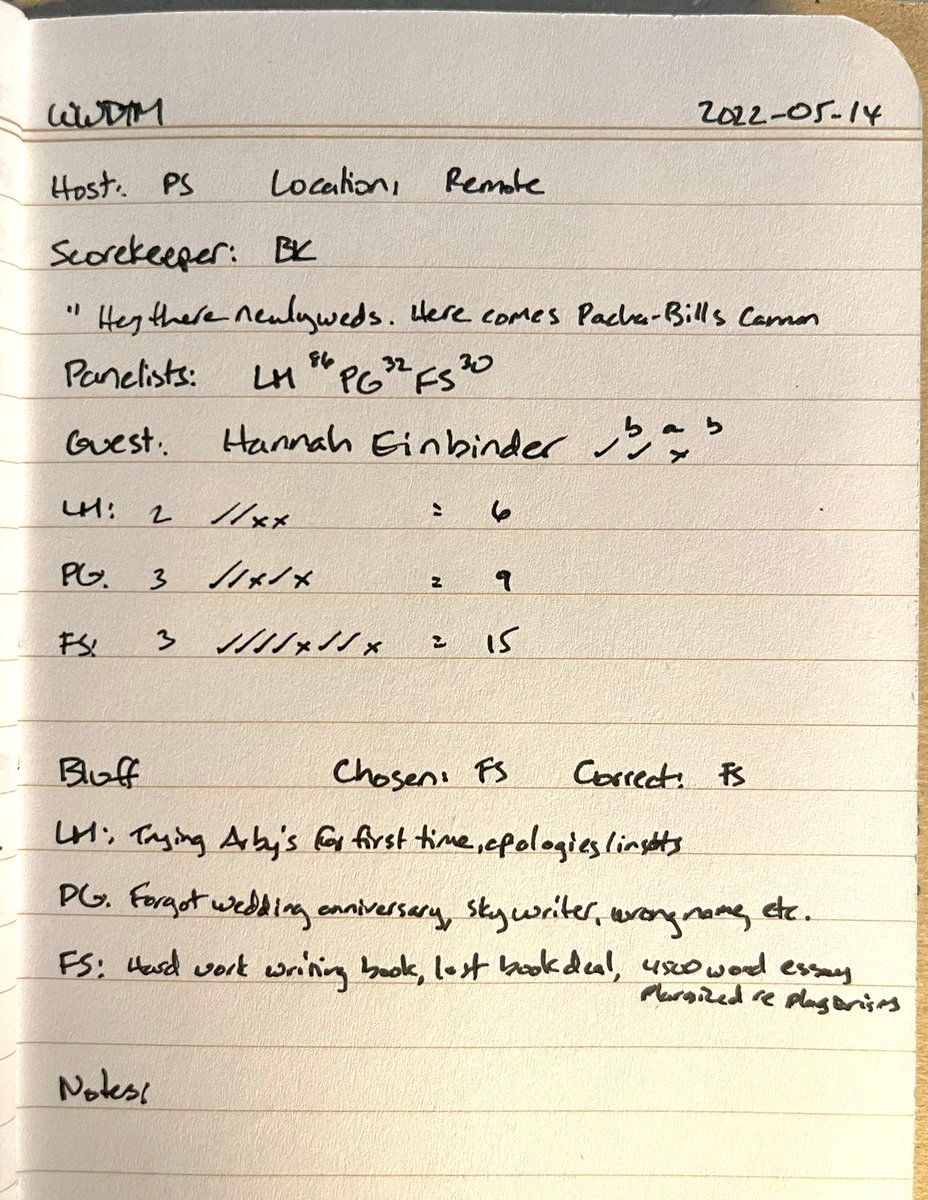 WWDTM 2022-05-14
Host: PS Location: Remote
Scorekeeper: BK
" Hey there newlyweds. Here comes Pacha-Bills Cannon
Panelists: LH 86 PG 32 FS 30
Guest: Hannah Einbinder ✓ ✓ b a x b
LH: 2 ✓✓xx = 6
PG: 3 ✓✓x✓x = 9
FS: 3 ✓✓✓✓x✓✓x = 15
Bluff Chosen: FS Correct: FS
LH: Trying Arby's for first time, apologies/insults
PG: Forgot wedding anniversary, sky writer, wrong name, etc.
FS: Hard work writing book, lost book deal, 4500 word essay
re plagarism
Notes: